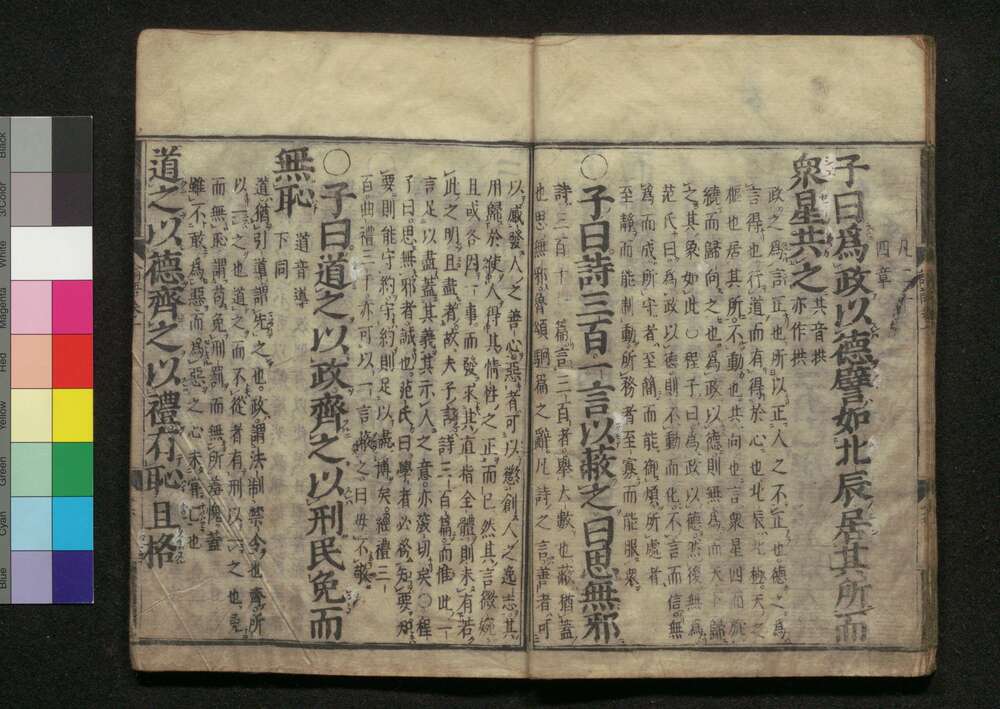 凡二
四章
子曰爲政以德譬如北辰居其所而
衆星共之 共音拱
亦作拱
政之爲言正也所以正人之不正也德之爲
言得也行道而有得於心也北辰北極天之
樞也居其所不動也共向也言衆星四面旋
繞而歸向之也爲政以德則無爲而天下歸
之其象如此○程子曰爲政以德然後無爲
范氏曰爲政以德則不動而化不言而信無
爲而成所守者至簡而能御煩所處者
至靜而能制動所務者至寡而能服衆
○子曰詩三百一言以蔽之曰思無邪
詩三百十一篇言三百者舉大數也蔽猶蓋
也思無邪魯頌駉篇之辭凡詩之言善者可
以感發人之善心惡者可以懲創人之逸志其
用歸於使人得其情性之正而已然其言微婉
且或各因一事而發求其直指全體則未有若
此之明且盡者故夫子言詩三百篇而惟此一
言足以盡蓋其義其示人之意亦深切矣○程
子曰思無邪者誠也范氏曰學者必務知要知
要則能守約守約則足以盡博矣經禮三
百曲禮三千亦可以一言蔽之曰毋不敬
○子曰道之以政齊之以刑民免而
無恥 道音導
下同
道猶引導謂先之也政謂法制禁令也齊所
以一之也道之而不從者有刑以一之也免
而無恥謂苟免刑罰而無所羞愧蓋
雖不敢爲惡而爲惡之心未嘗亡也
道之以德齊之以禮有恥且格
Black
3/Color
White
Magenta
Red
Yellow
Green
Cyan
Blue